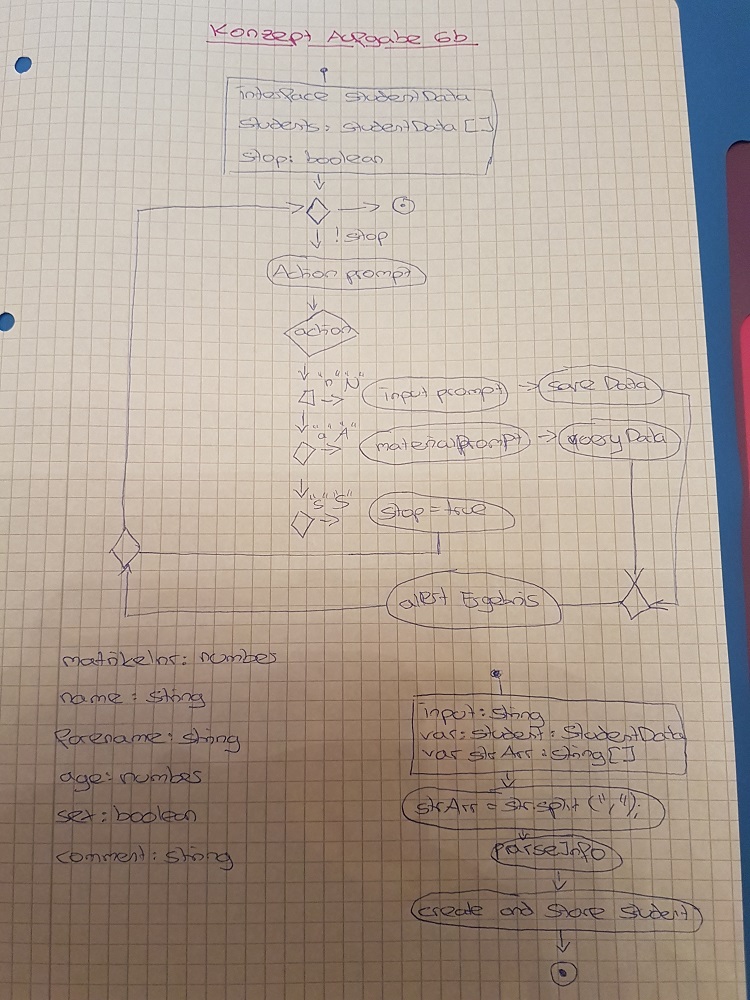 Konzept Aufgabe 6b
interface StudentData
students: StudentData []
stop: boolean
! stop
Action prompt
action
"n" "N"
input prompt
save Data
"a" "A"
materialprompt
queryData
"s" "S"
stop = true
alert Ergebnis
matrikelnr: number
name: string
forename: string
age: number
sex: boolean
comment: string
input: string
var: student: StudentData
var strArr: string[]
strArr = str.split (",");
parseInfo
create and store student